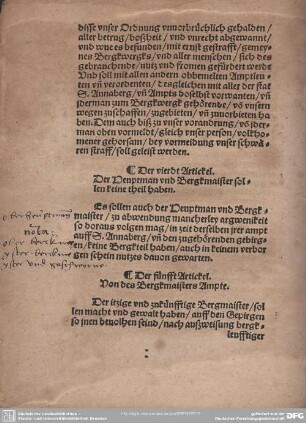 disse vnser Ordnung vnuerbrüchlich gehalden/
aller betrug/boßheit/ vnd vnrecht abgewannt/
vnd wue es befunden/mit ernst gestrafft/gemey-
nes Bergkwergks/vnd aller menschen/sich des
gebrauchende/nutz vnd fromen gefürdert werde
Vnd soll mit allen andern obbemelten Amptleu-
ten vn̄ verordenten/desgleichen mit aller der stat
S. Annaberg/vn̄ Ampts doselbst vorwanten/vn̄
jderman zum Bergkwergk gehörende/vō vnsern
wegen zu schaffen/zugebieten/vn̄ zuuorbieten ha
ben. Dem auch biß zu vnser vorandrung/vō jder-
man oben vormeldt/gleich vnser person/volkho-
mener gehorsam/bey vormeidung vnser schwä-
ren straff/soll geleist werden.
¶ Der vierdt Artickel.
Der Heuptman vnd Bergkmaister sol-
len keine theil haben.
Es sollen auch der Heuptman vnd Bergk-
maister/zu abwendung mancherley argwenikeit
so doraus volgen mag/in zeit derselben jrer ampt
auff S. Annaberg/vn̄ den zugehörenden gebirg-
en/keine Bergkteil haben/auch in keinem verbor
gen schein nutzes dauon gewarten.
nōta
¶ Der fünfft Artickel.
Von des Bergkmaisters Ampte.
Der itzige vnd zukünfftige Bergmaister/sol
len macht vnd gewalt haben/auff den Gepirgen
so jnen beuolhen seind/nach außweisung bergk-
leufftiger